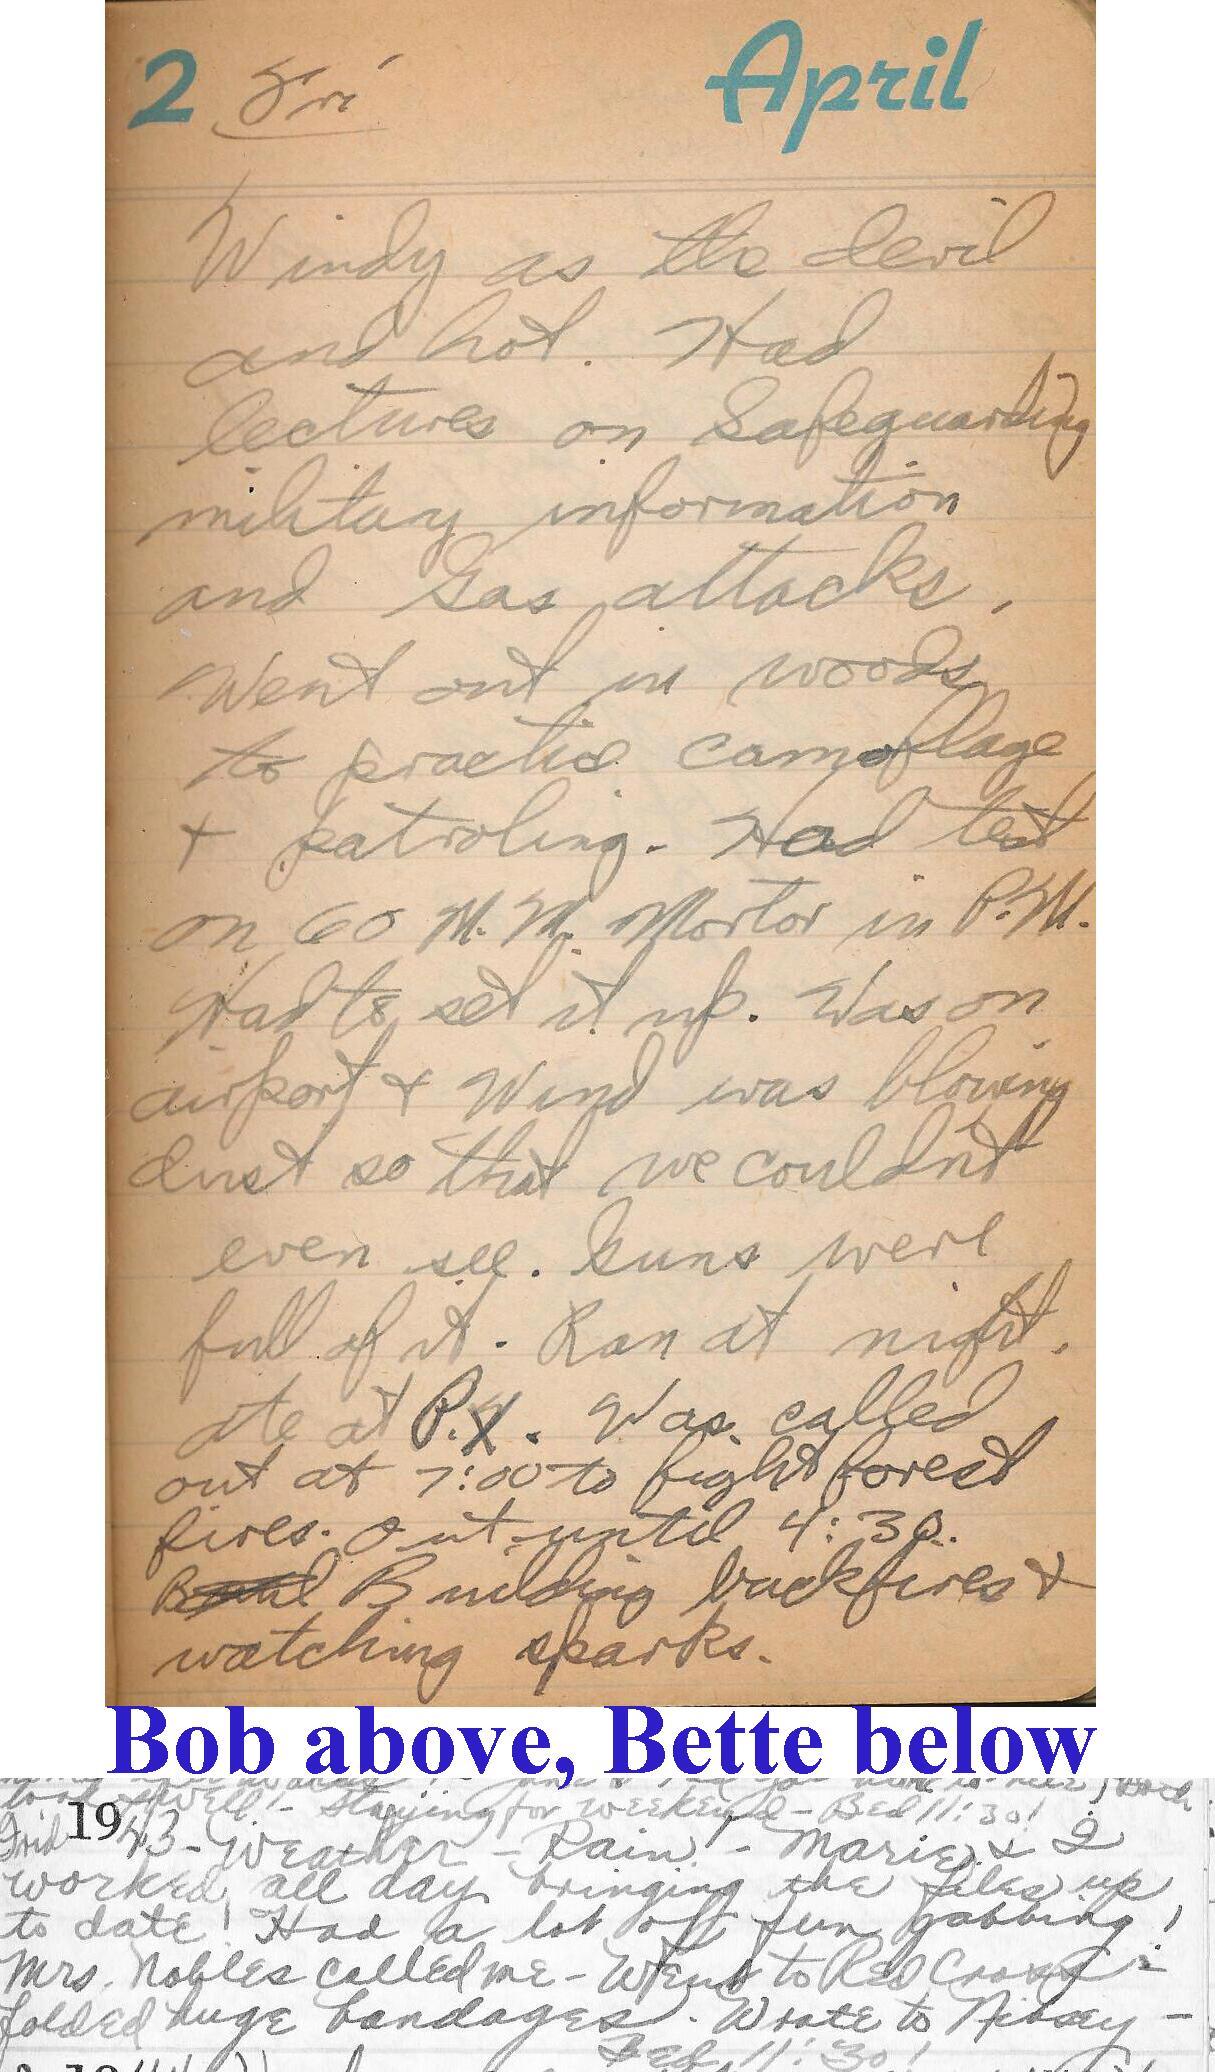 2 Fri April
Windy as the devil
and hot. Had
lectures on Safeguarding
military information
and Gas attacks.
Went out in woods
to practice camoflage
+ patroling. Had test
on 60 M.M. Mortor in P.M.
Had to set it up. Was on
airport & Wind was blowing
dust so that we couldn't
even see. Guns were
full of it. Ran at night.
ate at P.X. Was called
out at 7:00 to fight forest
fires. Out until 4:30.
Building backfires &
watching sparks.
Bob above, Bette below
well! - Staying for weekend - Bed 11:30!
Frid 1943 - Weather - Rain! - Marie & I
worked all day bringing the files up
to date! Had a lot of fun gabbing!
Mrs. Nobles called me - Went to Red Cross -
folded huge bandages. Wrote to -
Bed 11:30!
19